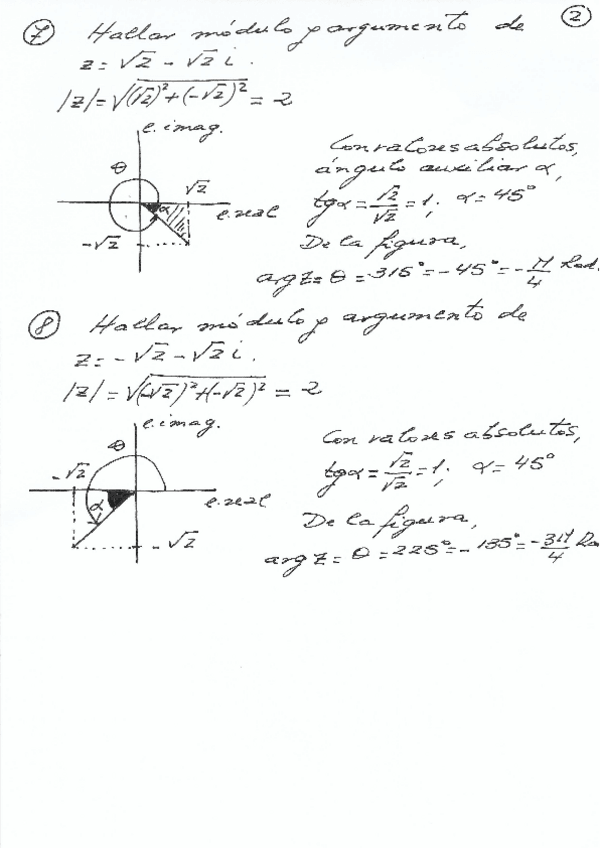 2
7 Hallar módulo y argumento de
z = √2 - √2 i.
|z| = √(√2)² + (-√2)² = 2
e. imag.
θ
√2
α
e. real
-√2
Con valores absolutos,
ángulo auxiliar α,
tg α = √2/√2 = 1; α = 45°
De la figura,
arg z = θ = 315° = -45° = -π/4 Rad.
8 Hallar módulo y argumento de
z = -√2 - √2 i.
|z| = √(-√2)² + (-√2)² = 2
e. imag.
θ
-√2
α
e. real
-√2
Con valores absolutos,
tg α = √2/√2 = 1; α = 45°
De la figura,
arg z = θ = 225° = -135° = -3π/4 Ra